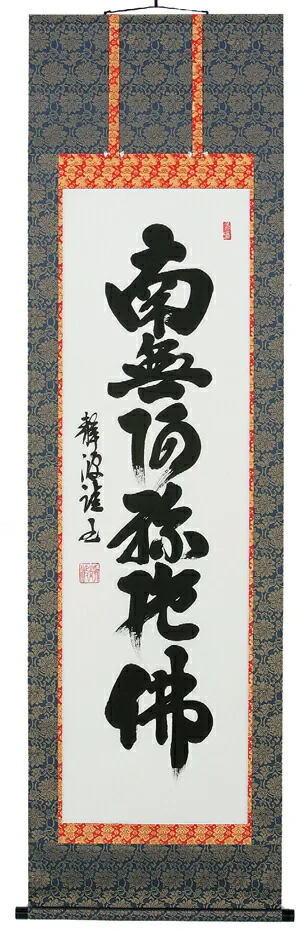 南無阿弥陀佛
静波謹書